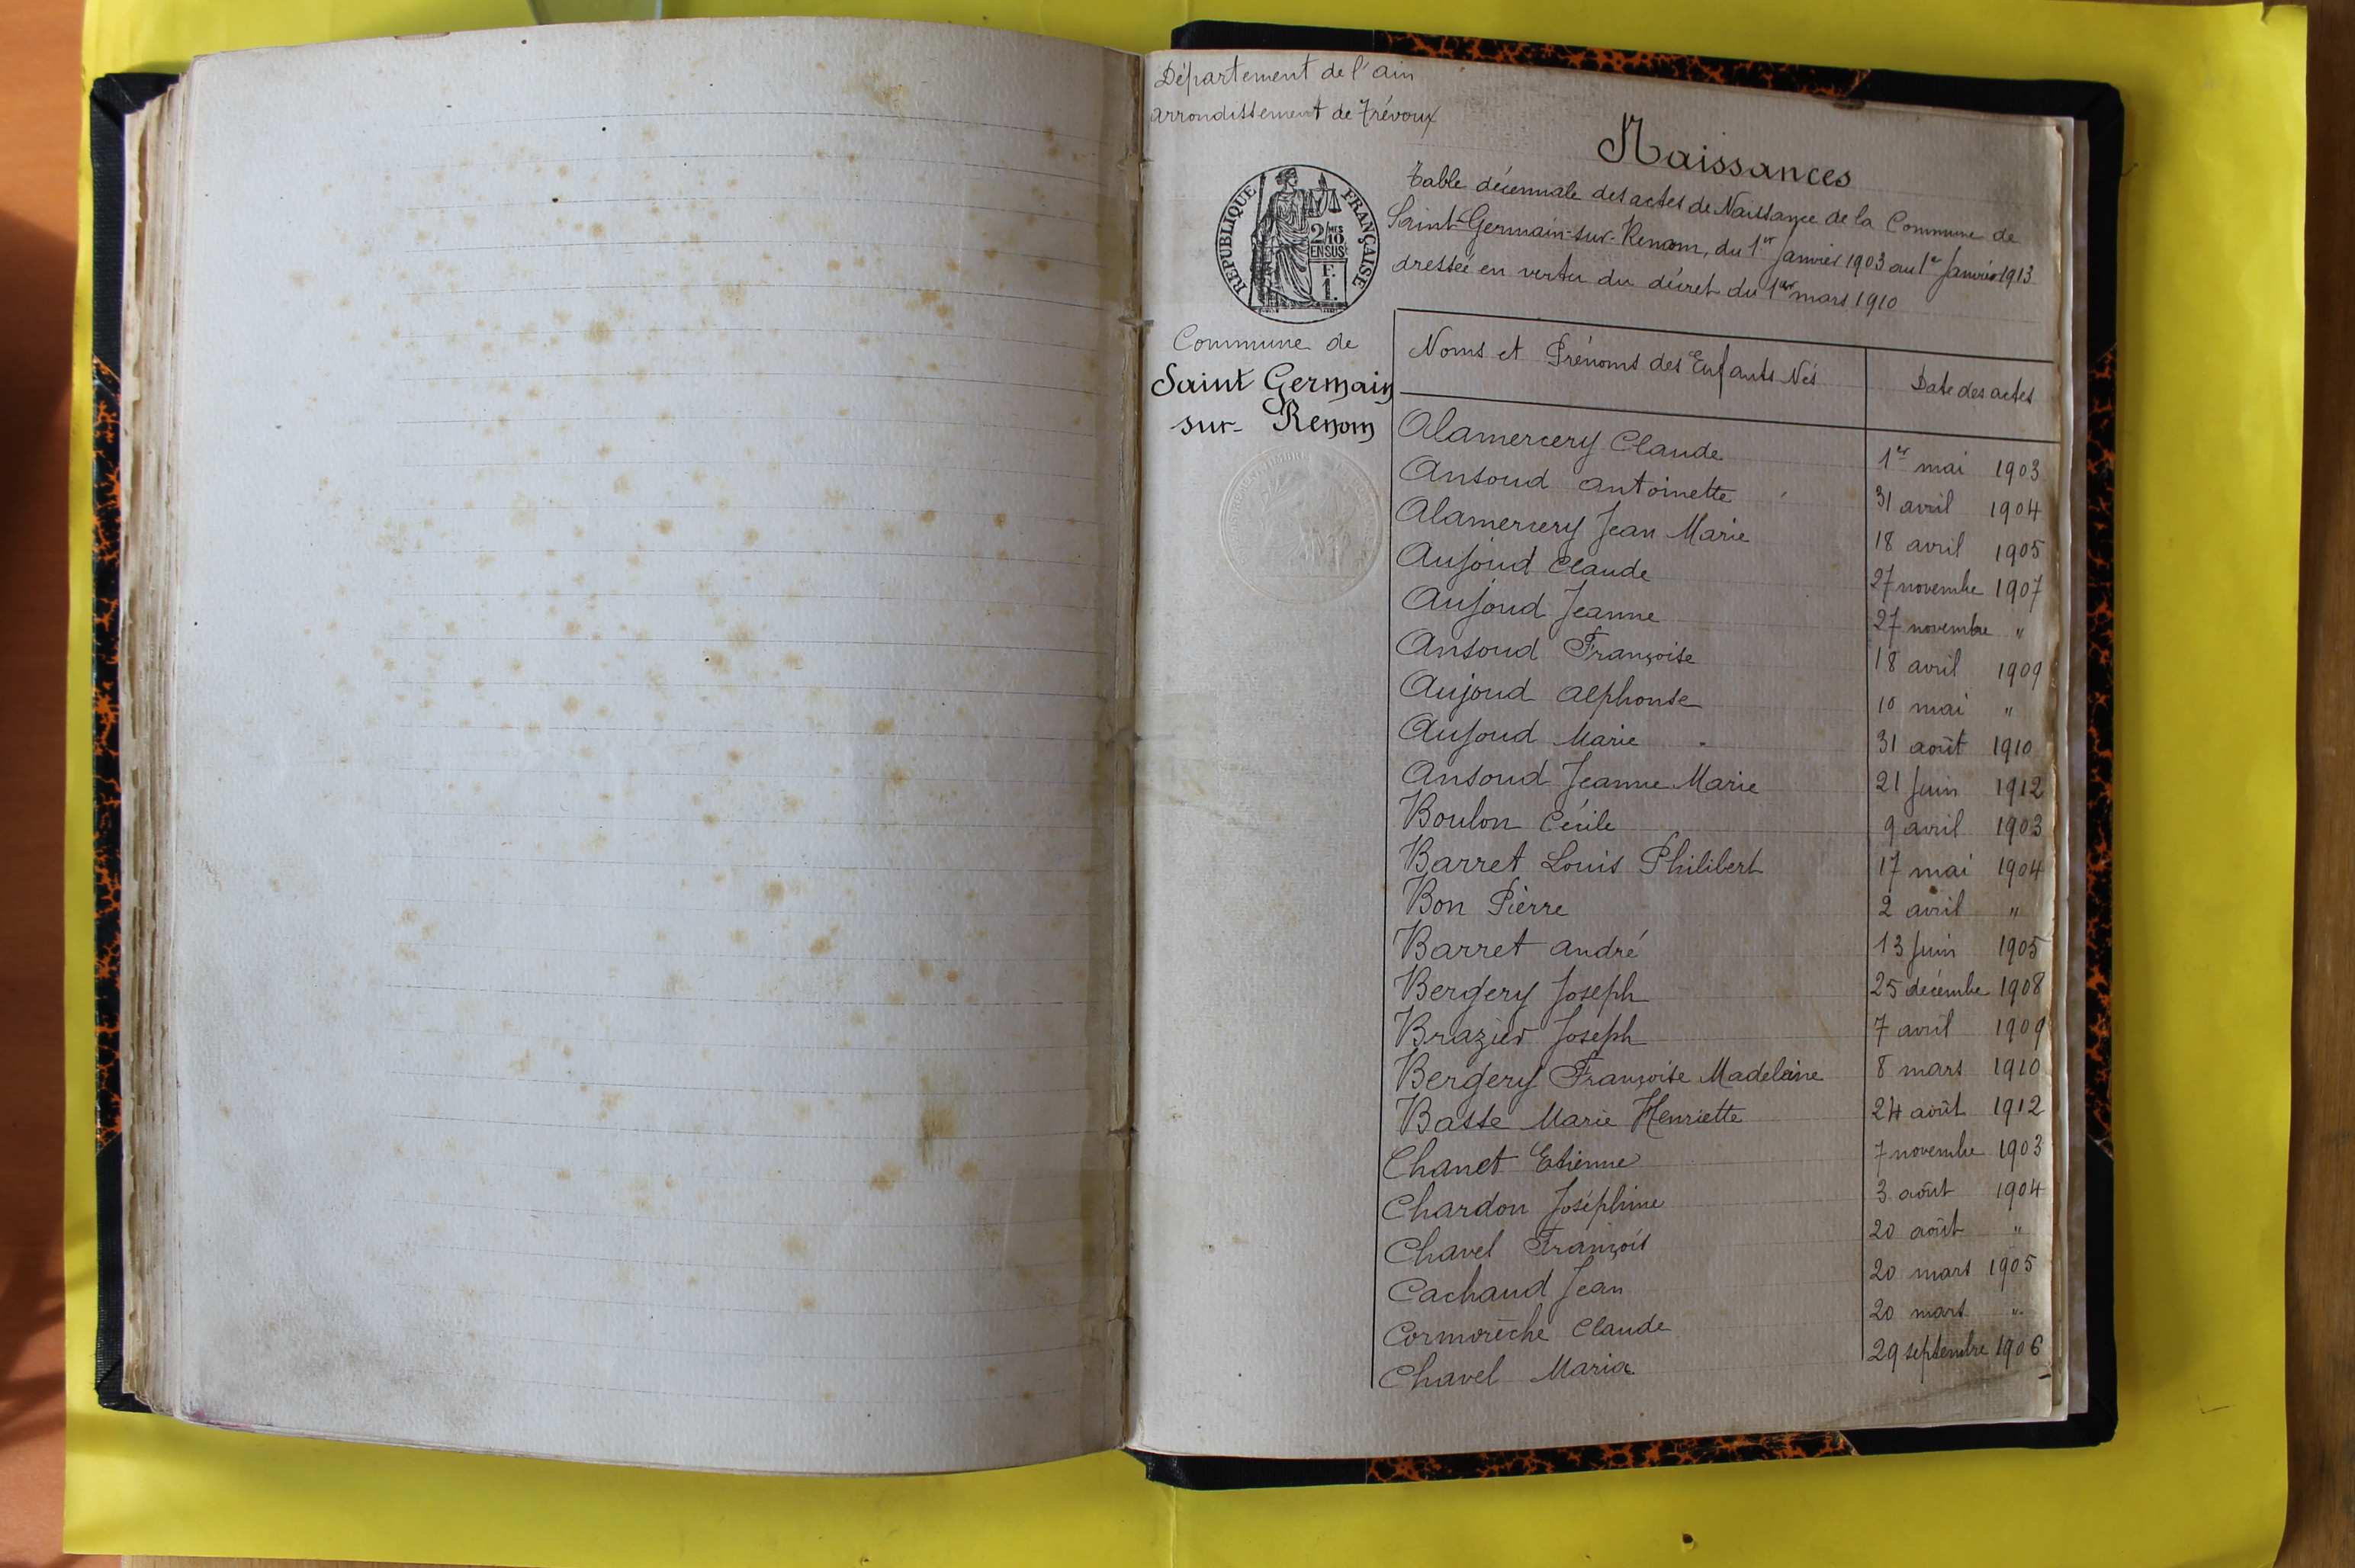 Département de l'ain
arrondissement de Trévoux
Naissances
Table décennale des actes de Naissance de la Commune de
Saint-Germain-sur-Renom, du 1er Janvier 1903 au 1er Janvier 1913
dressée en vertu du décret du 1er mars 1910
RÉPUBLIQUE FRANÇAISE
2/10 MES
EN SUS
F.
1.
Commune de
Saint Germain
sur- Renom
Noms et Prénoms des Enfants Nés Date des actes
Alamercery Claude 1er mai 1903
Ansoud antoinette 31 avril 1904
Alamercery Jean Marie 18 avril 1905
Aujoud Claude 27 novembre 1907
Aujoud Jeanne 27 novembre "
Ansoud Françoise 18 avril 1909
Aujoud alphonse 10 mai "
Aujoud Marie 31 août 1910
Ansoud Jeanne Marie 21 Juin 1912
Boulon Cécile 9 avril 1903
Barret Louis Philibert 17 mai 1904
Bon Pierre 2 avril "
Barret andré 13 Juin 1905
Bergery Joseph 25 décembre 1908
Brazier Joseph 7 avril 1909
Bergery Françoise Madeleine 8 mars 1910
Basse Marie Henriette 24 août 1912
Chanet Etienne 7 novembre 1903
Chardon Joséphine 3 août 1904
Chavel François 20 août "
Cachaud Jean 20 mars 1905
Cormorèche Claude 20 mars "
Chavel Maria 29 septembre 1906